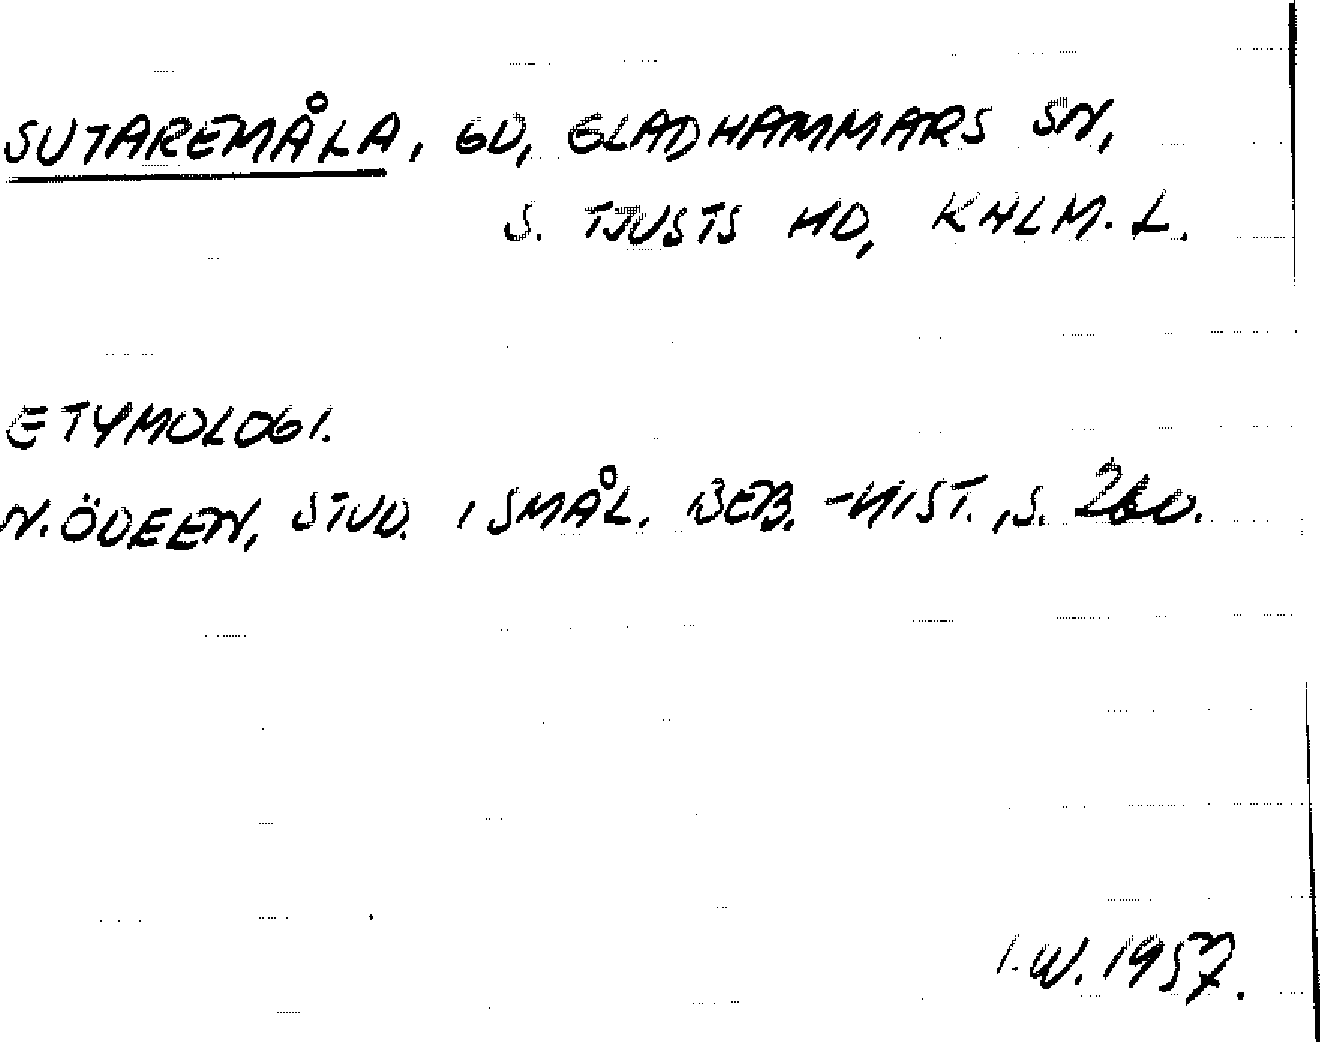 SUTAREMÅLA, GD, GLADHAMMARS SN,
S. TJUSTS HD, KALM. L.
ETYMOLOGI.
N. ÖDEEN, STUD. I SMÅL. BEB.-HIST., S. 260.
I.W. 1957.